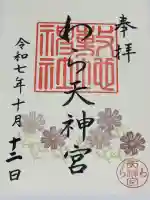 奉拝
わら天神宮
令和七年十月十二日
敷地神社